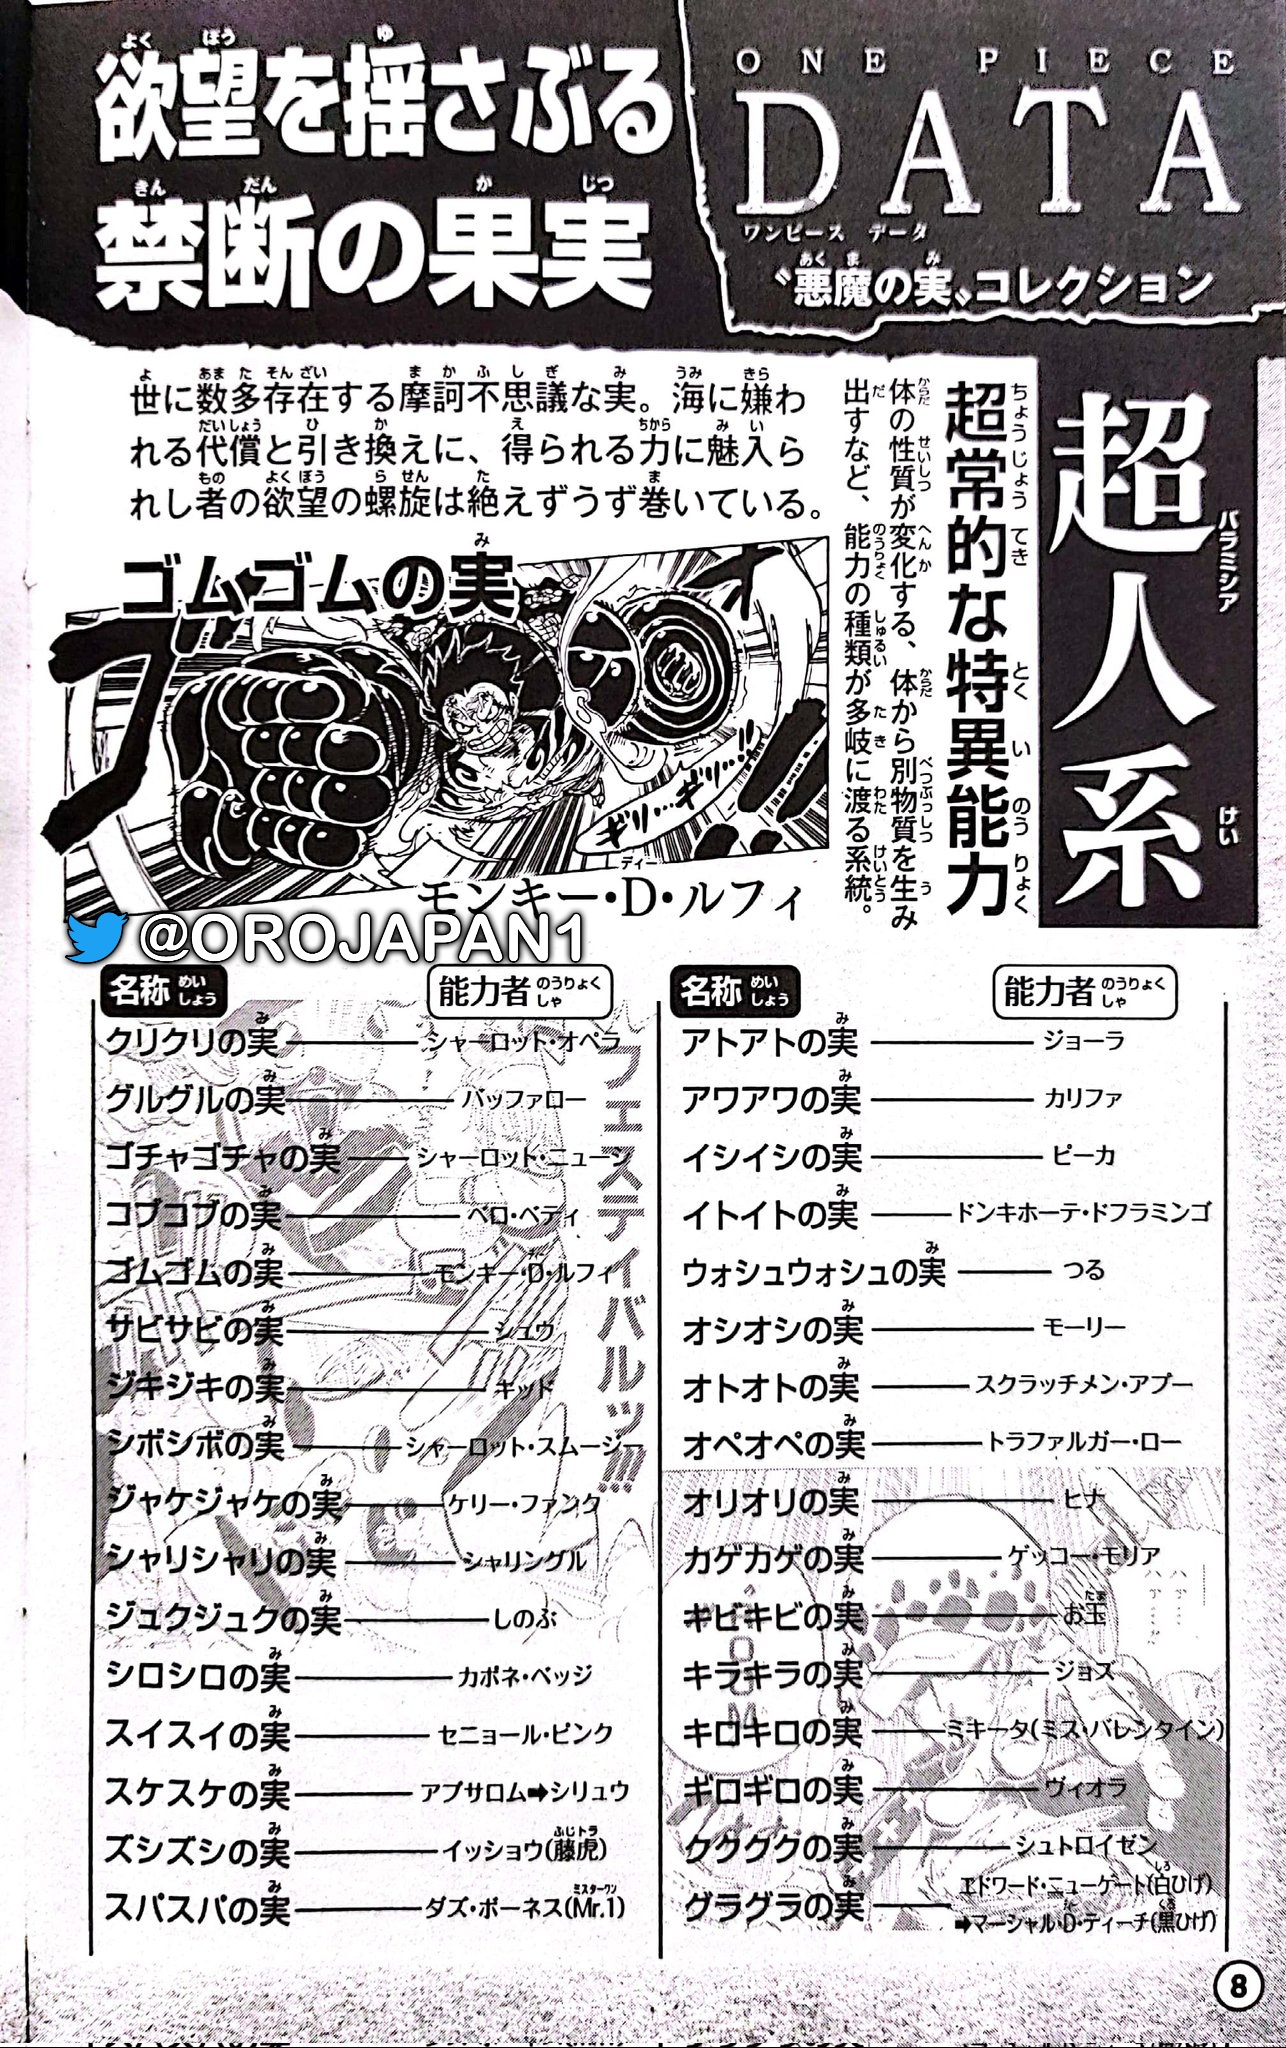 欲望を揺さぶる
禁断の果実
ONE PIECE
DATA
ワンピース データ
〝悪魔の実〟コレクション
世に数多存在する摩訶不思議な実。海に嫌わ
れる代償と引き換えに、得られる力に魅入ら
れし者の欲望の螺旋は絶えずうず巻いている。
超人系
パラミシア
けい
超常的な特異能力
体の性質が変化する、体から別物質を生み
出すなど、能力の種類が多岐に渡る系統。
ゴムゴムの実
ギリ…ギリ…!!
モンキー・D・ルフィ
@OROJAPAN1
名称 めいしょう 能力者 のうりょくしゃ
アトアトの実 ジョーラ
アワアワの実 カリファ
イシイシの実 ピーカ
イトイトの実 ドンキホーテ・ドフラミンゴ
ウォシュウォシュの実 つる
オシオシの実 モーリー
オトオトの実 スクラッチメン・アプー
オペオペの実 トラファルガー・ロー
オリオリの実 ヒナ
カゲカゲの実 ゲッコー・モリア
キビキビの実 お玉
キラキラの実 ジョズ
キロキロの実 ミキータ(ミス・バレンタイン)
ギロギロの実 ヴィオラ
ククククの実 シュトロイゼン
グラグラの実 エドワード・ニューゲート(白ひげ)
➡マーシャル・D・ティーチ(黒ひげ)
名称 めいしょう 能力者 のうりょくしゃ
クリクリの実 シャーロット・オペラ
グルグルの実 バッファロー
ゴチャゴチャの実 シャーロット・ニュージ
コブコブの実 ベロ・ベティ
ゴムゴムの実 モンキー・D・ルフィ
サビサビの実 シュウ
ジキジキの実 キッド
シボシボの実 シャーロット・スムージー
ジャケジャケの実 ケリー・ファンク
シャリシャリの実 シャリングル
ジュクジュクの実 しのぶ
シロシロの実 カポネ・ベッジ
スイスイの実 セニョール・ピンク
スケスケの実 アブサロム➡シリュウ
ズシズシの実 イッショウ(藤虎)
スパスパの実 ダズ・ボーネス(Mr.1)
フェスティバルッ!!!
8